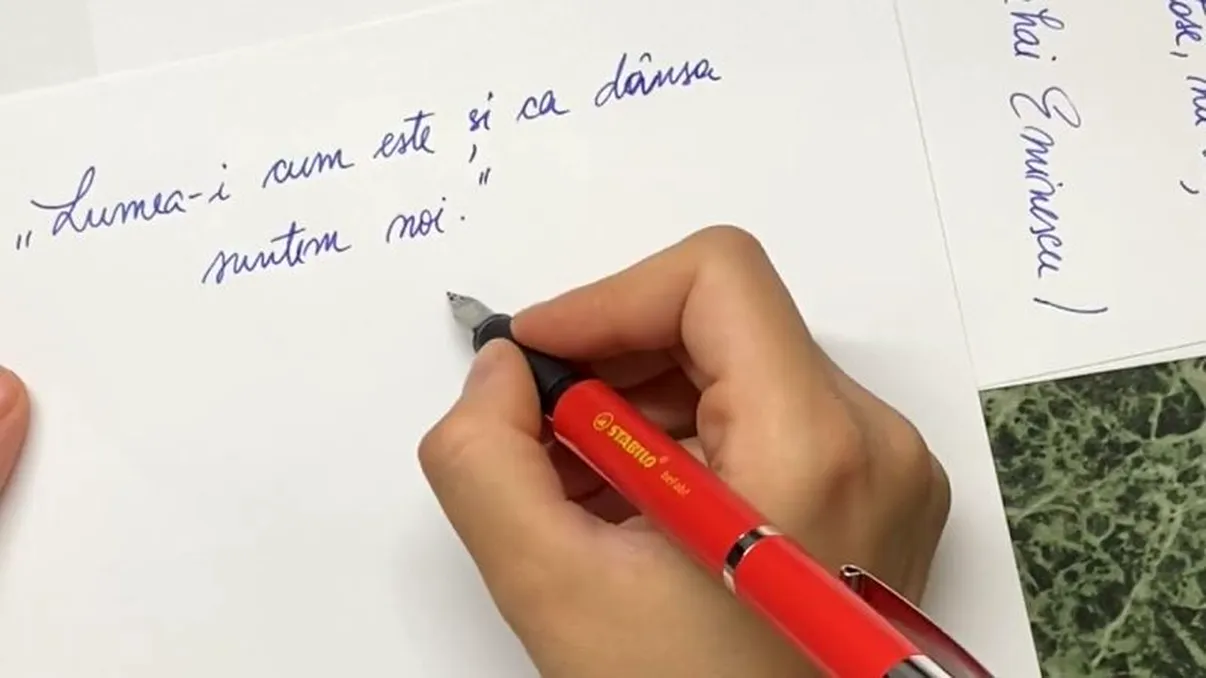 „Lumea-i cum este și ca dânsa
suntem noi."
STABILO®
bel ab!
hai Eminescu)
ose,